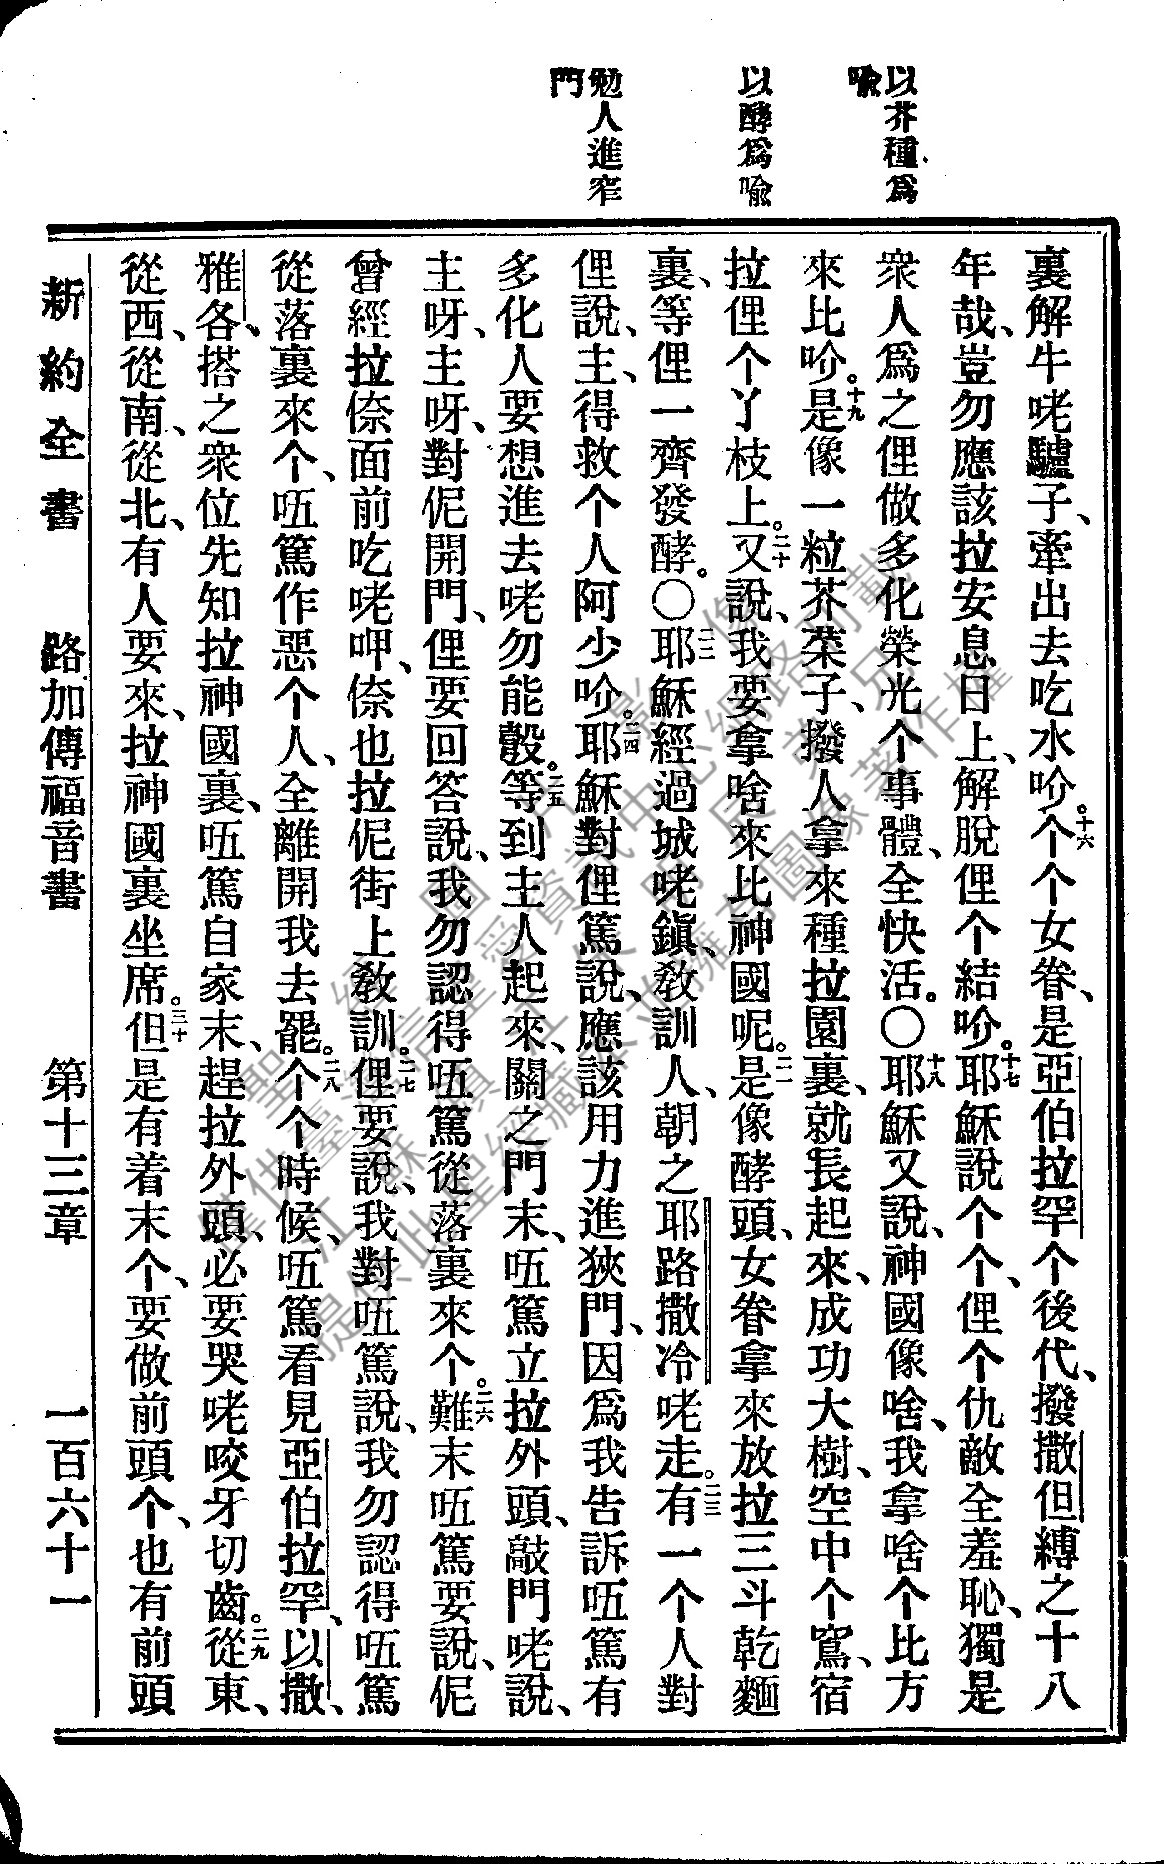 以芥種爲
喩
以酵爲喩
勉人進窄
門
裏解牛咾驢子、牽出去吃水吤。十六个个女眷、是亞伯拉罕个後代、撥撒但縛之十八
年哉、豈勿應該拉安息日上、解脫俚个結吤。十七耶穌說个个、俚个仇敵全羞恥、獨是
衆人爲之俚做多化榮光个事體、全快活。〇十八耶穌又說、神國像啥、我拿啥个比方
來比吤。十九是像一粒芥菜子、撥人拿來種拉園裏、就長起來、成功大樹、空中个鳥、宿
拉俚个丫枝上。二十又說、我要拿啥來比神國呢。二一是像酵頭、女眷拿來放拉三斗乾麵
裏、等俚一齊發酵。〇二二耶穌經過城咾鎭、敎訓人、朝之耶路撒冷咾走。二三有一个人對
俚說、主、得救个人阿少吤。二四耶穌對俚篤說、應該用力進狹門、因爲我告訴㑚篤有
多化人要想進去咾勿能彀。二五等到主人起來、關之門末、㑚篤立拉外頭、敲門咾說、
主呀、主呀、對伲開門、俚要回答說、我勿認得㑚篤從落裏來个。二六難末㑚篤要說、伲
曾經拉倷面前吃咾呷、倷也拉伲街上敎訓。二七俚要說、我對㑚篤說、我勿認得㑚篤
從落裏來个、㑚篤作惡个人、全離開我去罷。二八个个時候、㑚篤看見亞伯拉罕、以撒、
雅各、搭之衆位先知拉神國裏、㑚篤自家末、趕拉外頭、必要哭咾咬牙切齒。二九從東、
從西、從南、從北、有人要來、拉神國裏坐席。三十但是有着末个、要做前頭个、也有前頭
新約全書　路加傳福音書　第十三章　一百六十一